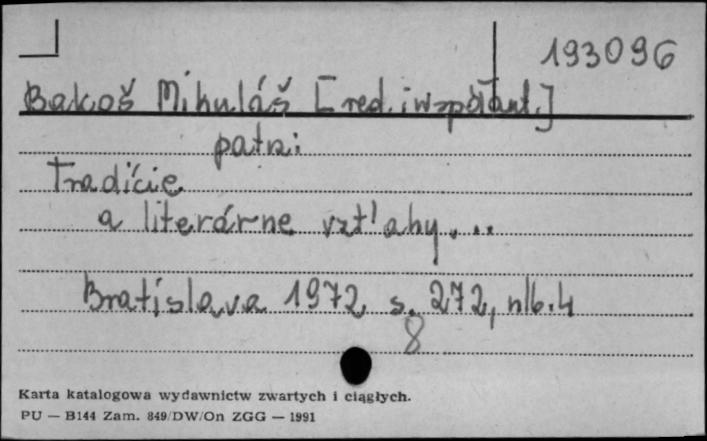 193096
Bakoš Mikuláš [red. i współaut.]
patrz:
Tradície
a literárne vzt'ahy...
Bratislava 1972 s. 272, nlb. 4
8
Karta katalogowa wydawnictw zwartych i ciągłych.
PU — B144 Zam. 849/DW/On ZGG — 1991